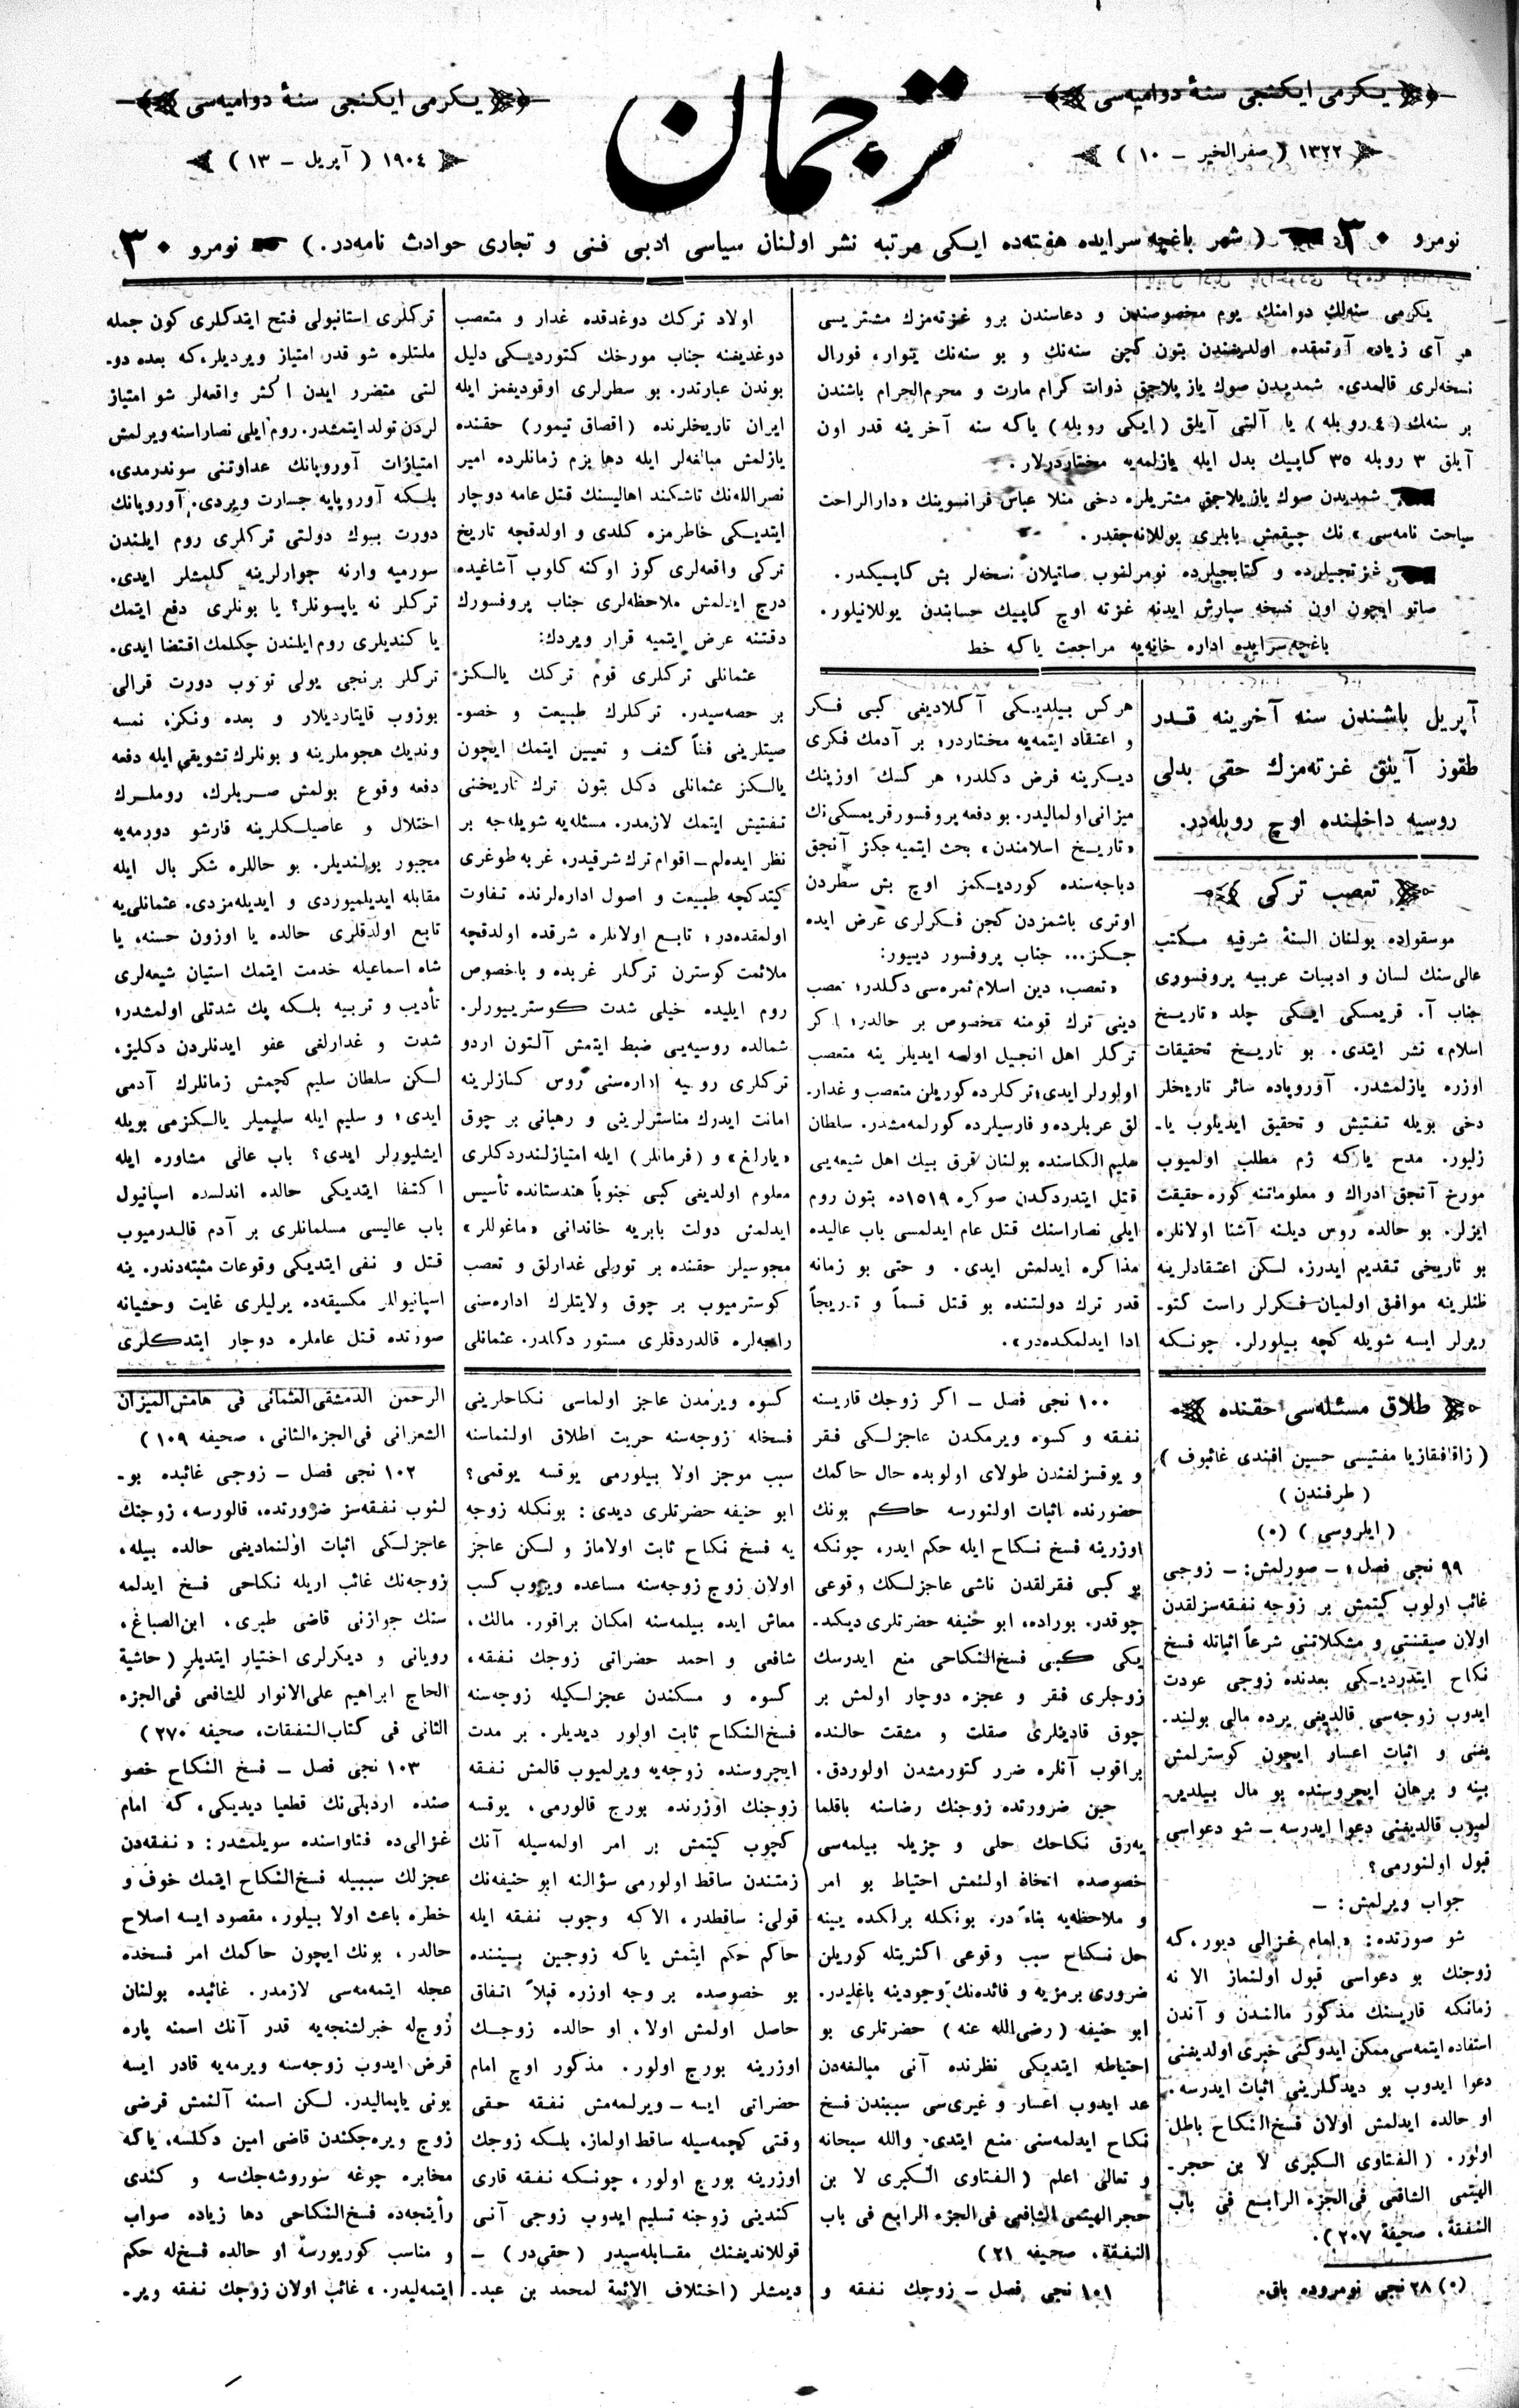 يكرمى ايكنجى سنۀ دواميه‌سى
١٣٢٢ ( صفرالخير ـ ١٠ )
ترجمان
يكرمى ايكنجى سنۀ دواميه‌سى
١٩٠٤ ( آپريل ـ ١٣ )
نومرو ٣٠ ( شهر باغچه سرايده هفته‌ده ايكى مرتبه نشر اولنان سياسى ادبى فنى و تجارى حوادث نامه‌در. ) نومرو ٣٠
يكرمى سنه‌لك دوامنك يوم مخصوصندن و دعاسندن برو غزته‌مزك مشتريسى
هر آى زياده آرتمقده اولديغندن بتون كچن سنه‌نك و بو سنه‌نك ينوار، فورال
نسخه‌لرى قالمدى. شمديدن صوك يازيلاجق ذوات كرام مارت و محرم‌الحرام باشندن
بر سنه‌لك (٤ روبله) يا آلتى آيلق (ايكى روبله) ياكه سنه آخرينه قدر اون
آيلق ٣ روبله ٣٥ كاپيك بدل ايله يازلمه‌يه مختاردرلار.
شمديدن صوك يازيلاجق مشتريلره دخى منلا عباس فرانسوينك «دارالراحت
سياحت نامه‌سى» نك چيقمش بابلرى يوللانه‌جقدر.
غزتجيلرده و كتابجيلرده نومرلنوب صاتيلان نسخه‌لر بش كاپيكدر.
صاتو ايچون اون نسخه سپارش ايدنه غزته اوچ كاپيك حسابندن يوللانيلور.
باغچه سرايده اداره خانه‌يه مراجعت ياكه خط
آپريل باشندن سنه آخرينه قدر
طقوز آيلق غزته‌مزك حقى بدلى
روسيه داخلنده اوچ روبله‌در.
تعصب تركى
موسقواده بولنان السنۀ شرقيه مكتب
عالى‌سنك لسان و ادبيات عربيه پروفسورى
جناب آ. قريمسكى ايكى جلد «تاريخ
اسلام» نشر ايتدى. بو تاريخ تحقيقات
اوزره يازلمشدر. آوروپاده سائر تاريخلر
دخى بويله تفتيش و تحقيق ايديلوب يا-
زليور. مدح ياكه زم مطلب اولميوب
مورخ آنجق ادراك و معلوماتنه كوره حقيقت
ايزلر. بو حالده روس ديلنه آشنا اولانلره
بو تاريخى تقديم ايدرز. لسكن اعتقادلرينه
ظنلرينه موافق اولميان فكرلر راست كتو-
ريرلر ايسه شويله كچه بيلورلر. چونكه
هركس بيلديكى آكلاديغى كبى فكر
و اعتقاد ايتمه‌يه مختاردر؛ بر آدمك فكرى
ديكرينه فرض دكلدر؛ هر كسك اوزينك
ميزانى اولماليدر. بو دفعه پروفسور قريمسكى‌نك
«تاريخ اسلامندن» بحث ايتميه جكز آنجق
دباجه‌سنده كورديكمز اوچ بش سطردن
اوترى باشمزدن كچن فكرلرى عرض ايده
جكز... جناب پروفسور دييور:
«تعصب، دين اسلام ثمره‌سى دكلدر؛ تعصب
دينى ترك قومنه مخصوص بر حالدر؛ اكر
تركلر اهل انجيل اولسه ايديلر ينه متعصب
اولورلر ايدى؛ تركلرده كوريلن متعصب و غدار-
لق عربلرده و فارسيلرده كورلمه‌مشدر. سلطان
سليم الكاسنده بولنان قرق بيك اهل شيعه‌يى
قتل ايتدردكدن صوكره ١٥١٩ده بتون روم
ايلى نصاراسنك قتل عام ايدلمسى باب عاليده
مذاكره ايدلمش ايدى. و حتى بو زمانه
قدر ترك دولتنده بو قتل قسماً و تدريجاً
ادا ايدلمكده‌در».
اولاد تركك دوغدقده غدار و متعصب
دوغديغنه جناب مورخك كتورديكى دليل
بوندن عبارتدر. بو سطرلرى اوقوديغمز ايله
ايران تاريخلرنده (اقصاق تيمور) حقنده
يازلمش مبالغه‌لر ايله دها بزم زمانلرده امير
نصرالله‌نك تاشكند اهاليسنك قتل عامه دوچار
ايتديكى خاطرمزه كلدى و اولدقجه تاريخ
تركى واقعه‌لرى كوز اوكنه كلوب آشاغيده
درج ايدلمش ملاحظه‌لرى جناب پروفسورك
دقتنه عرض ايتميه قرار ويردك:
عثمانلى تركلرى قوم تركك يالكز
بر حصه‌سيدر. تركلرك طبيعت و خصو-
صيتلرينى فناً كشف و تعيين ايتمك ايچون
يالكز عثمانلى دكل بتون ترك تاريخنى
تفتيش ايتمك لازمدر. مسئله‌يه شويله‌جه بر
نظر ايده‌لم ــ اقوام ترك شرقيدر، غربه طوغرى
كيتدكچه طبيعت و اصول اداره‌لرنده تفاوت
اولمقده‌در؛ تابع اولانلره شرقده اولدقچه
ملائمت كوسترن تركلر غربده و باخصوص
روم ايليده خيلى شدت كوستريبورلر.
شمالده روسيه‌يى ضبط ايتمش آلتون اردو
تركلرى روسيه اداره‌سنى روس كنازلرينه
امانت ايدرك مناسترلرينى و رهبانى بر چوق
«يارلغ» و (فرمانلر) ايله امتيازلندردكلرى
معلوم اولديغى كبى جنوباً هندستانده تأسيس
ايدلمش دولت بابريه خاندانى «ماغوللر»
مجوسيلر حقنده بر تورلى غدارلق و تعصب
كوسترميوب بر چوق ولايتلرك اداره‌سنى
راجه‌لره قالدردقلرى مستور دكلدر. عثمانلى
تركلرى استانبولى فتح ايتدكلرى كون جمله
ملتلره شو قدر امتياز ويرديلر، كه بعده دو-
لتى متضرر ايدن اكثر واقعه‌لر شو امتياز
لردن تولد ايتمشدر. روم ايلى نصاراسنه ويرلمش
امتيازات آوروپانك عداوتنى سوندرمدى،
بلكه آوروپايه جسارت ويردى. آوروپانك
دورت بيوك دولتى تركلرى روم ايلندن
سورميه وارنه جوارلرينه كلمشلر ايدى.
تركلر نه ياپسونلر؟ يا بونلرى دفع ايتمك
يا كنديلرى روم ايلندن چكلمك اقتضا ايدى.
تركلر برنجى يولى توتوب دورت قرالى
بوزوب قايتارديلار و بعده ونكر، نمسه
ونديك هجوملرينه و بونلرك تشويقى ايله دفعه
دفعه وقوع بولمش صربلرك، روملرك
اختلال و عاصيلكلرينه قارشو دورمه‌يه
مجبور بولنديلر. بو حاللره شكر بال ايله
مقابله ايديلميوردى و ايديله‌مزدى. عثمانلى‌يه
تابع اولدقلرى حالده يا اوزون حسنه، يا
شاه اسماعيله خدمت ايتمك استيان شيعه‌لرى
تأديب و تربيه بلكه پك شدتلى اولمشدر؛
شدت و غدارلغى عفو ايدنلردن دكليز،
لكن سلطان سليم كچمش زمانلرك آدمى
ايدى؛ و سليم ايله سليميلر يالكزمى بويله
ايشليورلر ايدى؟ باب عالى مشاوره ايله
اكتفا ايتديكى حالده اندلسده اسپانيول
باب عاليسى مسلمانلرى بر آدم قالدرميوب
قتل و نفى ايتديكى وقوعات مثبته‌دندر. ينه
اسپانيوللر مكسيقه‌ده يرليلرى غايت وحشيانه
صورتده قتل عاملره دوچار ايتدكلرى
طلاق مسئله‌سى حقنده
( زاقافقازيا مفتيسى حسين افندى غائبوف )
( طرفندن )
( ايلروسى ) (٠)
٩٩ نجى فصل؛ ــ صورلمش: ــ زوجى
غائب اولوب كيتمش بر زوجه نفقه‌سزلقدن
اولان صيقنتى و مشكلاتنى شرعاً اثباتله فسخ
نكاح ايتدرديكى بعدنده زوجى عودت
ايدوب زوجه‌سى قالديغى يرده مالى بولند-
يغنى و اثبات اعسار ايچون كوسترلمش
بينه و برهان ايچروسنده بو مال بيلدير-
لميوب قالديغنى دعوا ايدرسه ــ شو دعواسى
قبول اولنورمى؟
جواب ويرلمش: ــ
شو صورتده: «امام غزالى ديور، كه
زوجنك بو دعواسى قبول اولنماز الا نه
زمانكه قاريسنك مذكور مالندن و آندن
استفاده ايتمه‌سى ممكن ايدوكنى خبرى اولديغنى
دعوا ايدوب بو ديدكلرينى اثبات ايدرسه.
او حالده ايدلمش اولان فسخ‌النكاح باطل
اولور. (الفتاوى الكبرى لا بن حجر-
الهيتمى الشافعى فى‌الجزء الرابع فى باب
النفقة، صحيفۀ ٢٠٧).
(٠) ٢٨ نجى نومروده باق.
١٠٠ نجى فصل ــ اكر زوجك قاريسنه
نفقه و كسوه ويرمكدن عاجزلكى فقر
و يوقسزلغندن طولاى اولوبده حال حاكمك
حضورنده اثبات اولنورسه حاكم بونك
اوزرينه فسخ نكاح ايله حكم ايدر، چونكه
بو كبى فقرلقدن ناشى عاجزلكك وقوعى
چوقدر. بوراده، ابو حنيفه حضرتلرى ديكد-
يكى كبى فسخ‌النكاحى منع ايدرسك
زوجلرى فقر و عجزه دوچار اولمش بر
چوق قادينلرى صقلت و مشقت حالنده
براقوب آنلره ضرر كتورمشدن اولوردق.
حين ضرورتده زوجنك رضاسنه باقلما
يه‌رق نكاحك حلى و جزيله بيلمه‌سى
خصوصده اتخاذ اولنمش احتياط بو امر
و ملاحظه‌يه بناءً در. بونكله برلكده يينه
حل نكاح سبب وقوعى اكثريتله كوريلن
ضرورى برمزيه و فائده‌نك وجودينه باغليدر.
ابو حنيفه (رضى‌الله عنه) حضرتلرى بو
احتياطه ايتديكى نظرنده آنى مبالغه‌دن
عد ايدوب اعسار و غيرى‌سى سببندن فسخ
نكاح ايدلمه‌سنى منع ايتدى. والله سبحانه
و تعالى اعلم (الفتاوى الكبرى لا بن
حجرالهيتمى الشافعى فى‌الجزء الرابع فى باب
النفقة، صحيفه ٢١)
١٠١ نجى فصل ــ زوجك نفقه و
كسوه ويرمدن عاجز اولماسى نكاحلرينى
فسخله زوجه‌سنه حريت اطلاق اولنماسنه
سبب موجز اولا بيلورمى يوقسه يوقمى؟
ابو حنيفه حضرتلرى ديدى: بونكله زوجه
يه فسخ نكاح ثابت اولاماز و لسكن عاجز
اولان زوج زوجه‌سنه مساعده ويروب كسب
معاش ايده بيلمه‌سنه امكان براقور. مالك،
شافعى و احمد حضراتى زوجك نفقه،
كسوه و مسكندن عجزلكيله زوجه‌سنه
فسخ‌النكاح ثابت اولور ديديلر. بر مدت
ايچروسنده زوجه‌يه ويرلميوب قالمش نفقه
زوجنك اوزرنده بورج قالورمى، يوقسه
كچوب كيتمش بر امر اولمه‌سيله آنك
زمتندن ساقط اولورمى سؤالنه ابو حنيفه‌نك
قولى: ساقطدر، الاكه وجوب نفقه ايله
حاكم حكم ايتمش ياكه زوجين بيننده
بو خصوصده بر وجه اوزره قبلاً اتفاق
حاصل اولمش اولا، او حالده زوجك
اوزرينه بورج اولور. مذكور اوچ امام
حضراتى ايسه ــ ويرلمه‌مش نفقه حقى
وقتى كچمه‌سيله ساقط اولماز. بلكه زوجك
اوزرينه بورج اولور، چونكه نفقه قارى
كندينى زوجنه تسليم ايدوب زوجى آنى
قوللانديغنك مقابله‌سيدر (حقى‌در) ــ
ديمشلر (اختلاف الائمة لمحمد بن عبد-
الرحمن الدمشقى العثمانى فى هامش‌الميزان
الشعرانى فى‌الجزء الثانى، صحيفه ١٠٩)
١٠٢ نجى فصل ــ زوجى غائبده بو-
لنوب نفقه‌سز ضرورتده، قالورسه، زوجنك
عاجزلكى اثبات اولنماديغى حالده بيله،
زوجه‌نك غائب اريله نكاحى فسخ ايدلمه
سنك جوازنى قاضى طبرى، ابن‌الصباغ،
رويانى و ديكرلرى اختيار ايتديلر (حاشية
الحاج ابراهيم على‌الانوار للشافعى فى‌الجزء
الثانى فى كتاب‌النفقات، صحيفه ٢٧٠)
١٠٣ نجى فصل ــ فسخ النكاح خصو
صنده اردبلى‌نك قطعيا ديديكى، كه امام
غزالى‌ده فتاواسنده سويلمشدر: «نفقه‌دن
عجزلك سببيله فسخ‌النكاح ايتمك خوف و
خطره باعث اولا بيلور، مقصود ايسه اصلاح
حالدر، بونك ايچون حاكمك امر فسخده
عجله ايتمه‌مه‌سى لازمدر. غائبده بولنان
زوج‌له خبرلشنجه‌يه قدر آنك اسمنه پاره
قرض ايدوب زوجه‌سنه ويرمه‌يه قادر ايسه
بونى ياپماليدر. لكن اسمنه آلنمش قرضى
زوج ويره‌جكندن قاضى امين دكلسه، ياكه
مخابره چوغه سوروشه‌جك‌سه و كندى
رأينجه‌ده فسخ‌النكاحى دها زياده صواب
و مناسب كوريورسه او حالده فسخ‌له حكم
ايتمه‌ليدر.» غائب اولان زوجك نفقه وير-